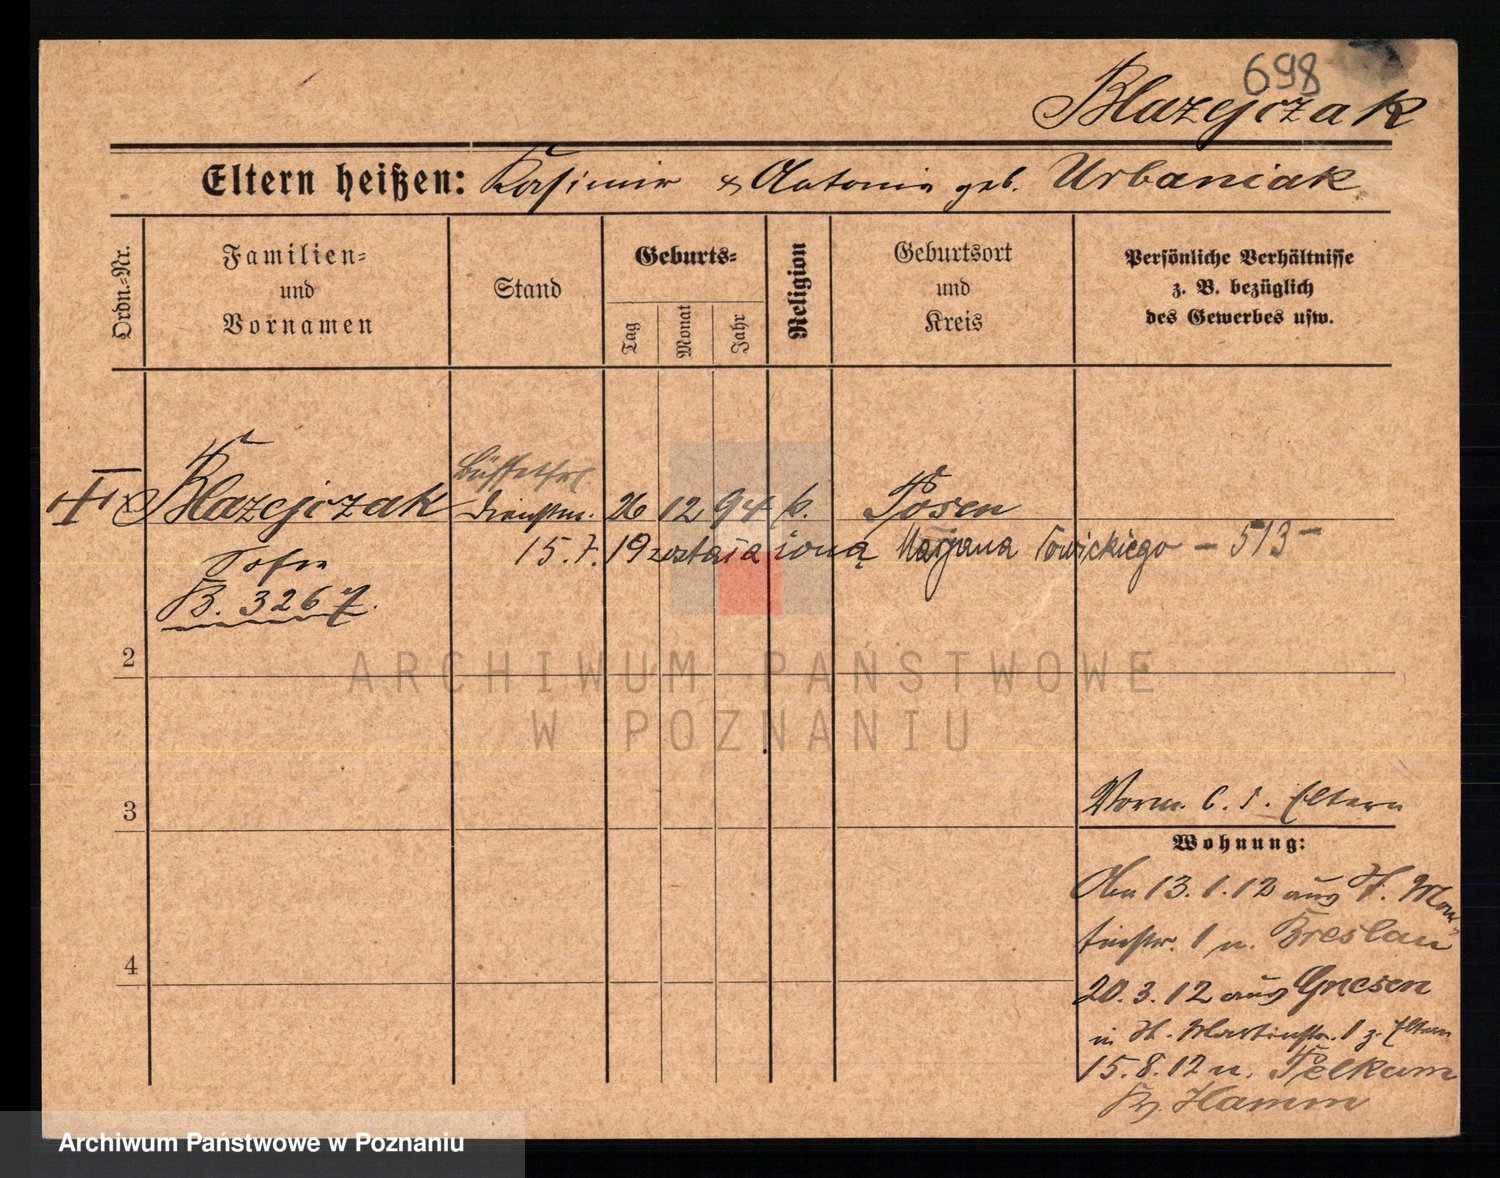 698
Blazejczak
Eltern heißen: Kasimir & Antonie geb. Urbaniak
Ordn.-Nr.
Familien-
und
Vornamen
Stand
Geburts-
Tag
Monat
Jahr
Religion
Geburtsort
und
Kreis
Persönliche Verhältnisse
z. B. bezüglich
des Gewerbes usw.
Büffetfrl.
Blazejczak Dienstm. 26 12 94 k. Posen
15.7.19 została żoną Marjana Nowickiego - 513 -
B. 3267.
2
3
4
ARCHIWUM PAŃSTWOWE
W POZNANIU
Vorm. b. d. Eltern
Wohnung:
13.1.12 aus St. Mar-
tinstr. 1 n. Breslau
20.3.12 aus Gnesen
n. St. Martinstr. 1 z. Eltern
15.8.12 n. Pelkum
Kr. Hamm
Archiwum Państwowe w Poznaniu